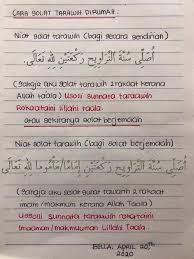 CARA SOLAT TARAWIH DIRUMAH.
Niat solat tarawih (bagi secara sendirian)
أُصَلِّى سُنَّةَ التَّرَاوِيحِ رَكْعَتَيْنِ لِلّٰهِ تَعَالَى.
(Sahaja aku solat tarawih 2 rakaat kerana
Allah taala) Usolli Sunnata tarawih
Rokaataini lillahi taala
atau sekiranya solat berjemaah
Niat solat tarawih (bagi solat berjemaah)
أُصَلِّى سُنَّةَ التَّرَاوِيحِ رَكْعَتَيْنِ إِمَامًا/مَأْمُومًا لِلّٰهِ تَعَالَى
(Sahaja aku solat sunat tarawih 2 rakaat
imam / makmum kerana Allah Taala)
Ussolli Sunnata tarawih rokataini
Imaman/makmuman lillahi Taala.
BELLA, APRIL 20th
2020